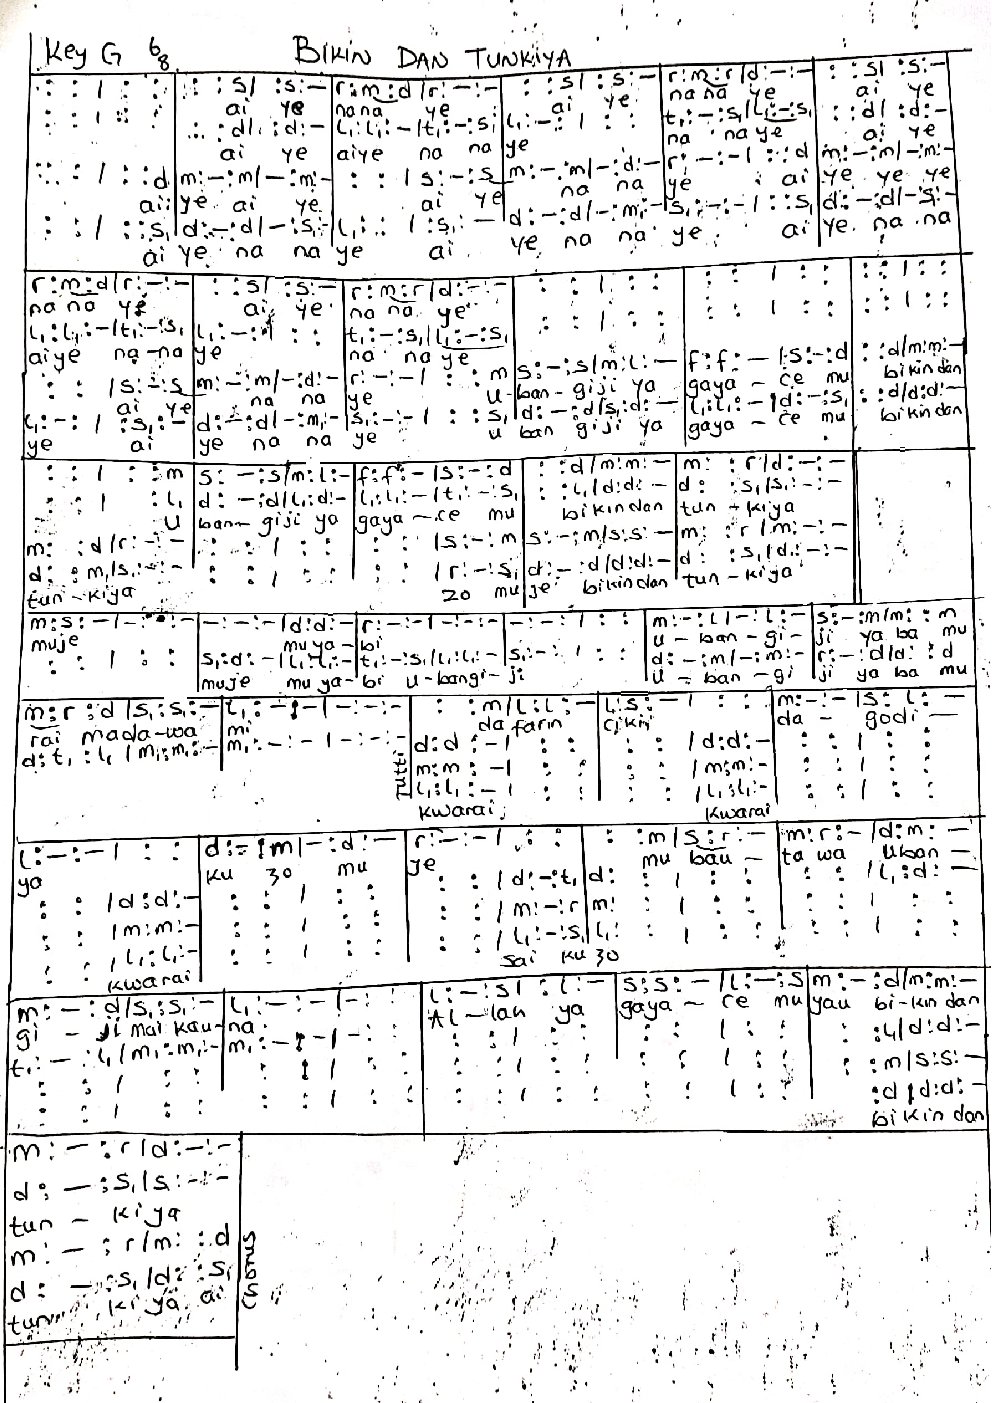 Key G 6/8 BIKIN DAN TUNKIYA
: : | : : | : : s| : s: – | r: m: d | r: – : – | : : s| : s: – | r: m: r | d: – : – | : : s| : s: –
ai ye nana ye ai ye na na ye ai ye
: : | : : | : : d| : d: – | l₁: l₁: – | t₁: – : s₁ | l₁: – : | : : | t₁: – : s₁ | l₁: – : s₁ | : : d| : d: –
ai ye aiye na na ye na na ye ai ye
: : | : : d | m: – : m | – : m: – | : : | s: – : s | m: – : m | – : d: – | r: – : – | : : d | m: – : m | – : m: –
ai ye ai ye ai ye na na ye ai ye ye ye
: : | : : s₁ | d: – : d | – : s₁: – | l₁: : | : s₁: – | d: – : d | – : m₁: – | s₁: – : – | : : s₁ | d: – : d | – : s₁: –
ai ye na na ye ai ye na na ye ai ye na na
r: m: d | r: – : – | : : s| : s: – | r: m: r | d: – : – | : : | : : | : : | : : | : : | : :
na na ye ai ye na na ye
l₁: l₁: – | t₁: – : s₁ | l₁: – : | : : | t₁: – : s₁ | l₁: – : s₁ | : : | : : | : : | : : | : : | : :
aiye na – na ye na na ye
: : | s: – : s | m: – : m | – : d: – | r: – : – | : : m | s: – : s | m: l: – | f: f: – | s: – : d | : : d | m: m: –
ai ye na na ye u – ban – giji ya gaya – ce mu bikin dan
l₁: – : | : s₁: – | d: – : d | – : m₁: – | s₁: – : – | : : s₁ | d: – : d | s₁: d: – | l₁: l₁: – | d: – : s₁ | : : d | d: d: –
ye ai ye na na ye u ban giji ya gaya – ce mu bikin dan
: : | : : m | s: – : s | m: l: – | f: f: – | s: – : d | : : d | m: m: – | m: : r | d: – : –
: : | : : l₁ | d: – : d | l₁: d: – | l₁: l₁: – | t₁: – : s₁ | : : l₁ | d: d: – | d: : s₁ | s₁: – : –
u ban – giji ya gaya – ce mu bikin dan tun – kiya
m: : d | r: – : – | : : | : : | : : | s: – : m | s: – : m | s: s: – | m: : r | m: – : –
d: : m₁ | s₁: – : – | : : | : : | : : | r: – : s₁ | d: – : d | d: d: – | d: : s₁ | d: – : –
tun – kiya zo mu je bikin dan tun – kiya
m: s: – | – : – : – | – : – : – | d: d: – | r: – : – | – : – : – | – : – : – | : : | m: – : l | – : l: – | s: – : m | m: : m
muje mu ya – bi u – ban – gi – ji ya ba mu
: : | : : | s₁: d: – | l₁: l₁: – | t₁: – : s₁ | l₁: l₁: – | s₁: – : | : : | d: – : m | – : m: – | r: – : d | d: : d
muje mu ya – bi u – bangi – ji u – ban – gi ji ya ba mu
m: r : d | s₁: s₁: – | l₁: – : – | – : – : – | : : m | l: l: – | l: s: – | : : | m: – : – | s: l: –
rai mada – wa mi da farin cikin da – godi –
d: t₁ : l₁ | m₁: m₁: – | m₁: – : – | – : – : – | d: d : – | : : | : : | d: d: – | : : | : :
Tutti m: m : – | : : | : : | m: m: – | : : | : :
l₁: l₁: – | : : | : : | l₁: l₁: – | : : | : :
kwarai kwarai
l: – : – | : : | d: – : m | – : d: – | r: – : – | : : | : : m | s: r: – | m: r: – | d: m: –
ya ku zo mu je mu bau – ta wa Uban –
: : | d: d: – | : : | : : | : : | d: – : t₁ | d: : | : : | : : | l₁: d: –
: : | m: m: – | : : | : : | : : | m: – : r | m: : | : : | : : | : :
: : | l₁: l₁: – | : : | : : | : : | l₁: – : s₁ | l₁: : | : : | : : | : :
kwarai sai ku zo
m: – : d | s₁: s₁: – | l₁: – : – | – : – : – | l: – : s | : l: – | s: s: – | l: – : s | m: – : d | m: m: –
gi – ji mai kau – na Al – lah ya gaya – ce mu yau bi – kin dan
t₁: – : l₁ | m₁: m₁: – | m₁: – : – | – : – : – | : : | : : | : : | : : | : : l₁ | d: d: –
: : | : : | : : | : : | : : | : : | : : | : : | : : m | s: s: –
: : | : : | : : | : : | : : | : : | : : | : : | : : d | d: d: –
bikin dan
m: – : r | d: – : –
d: – : s₁ | s₁: – : –
tun – kiya
m: – : r | m: : d
d: – : s₁ | d: : s₁
tun kiya ai
Chorus